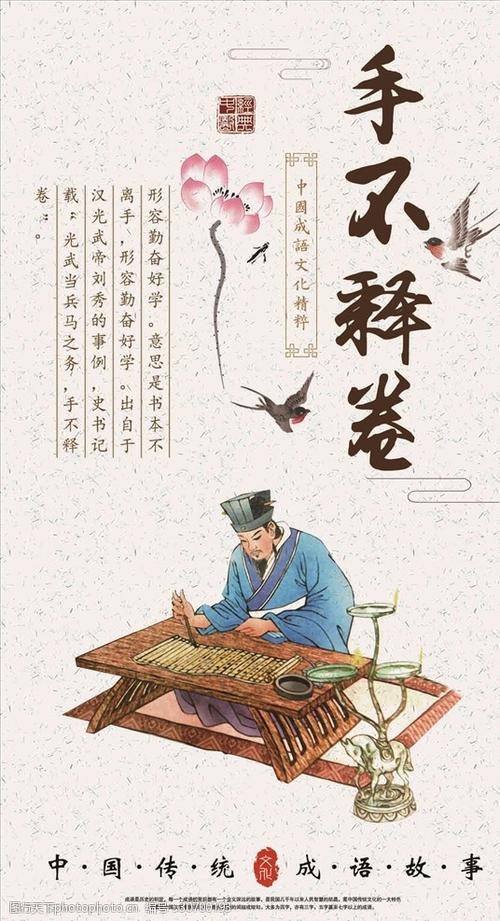 手不释卷
中國成語文化精粹
經典
形容勤奋好学。意思是书本不
离手，形容勤奋好学。出自于
汉光武帝刘秀的事例，史书记
载“光武当兵马之务，手不释
卷”。
中·国·传·统
文化
成·语·故·事